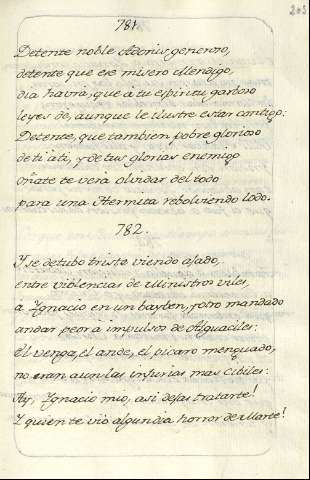 203
781.
Detente noble Adonis generoso,
detente que ese misero Mendigo,
dia havrà, que à tu espiritu garboso
leyes de, aunque le ilustre estar contigo:
Detente, que tambien pobre glorioso
de ti à ti, y de tus glorias enemigo
Oñate te verà olvidar del todo
para una Hermita rebolviendo lodo.
782.
Y se detubo triste viendo asado,
entre violencias de Ministros viles,
à Ygnacio en un bayben, y otro mandado
andar peor à impulsos de Alguaciles:
El venga, el ande, el picaro menguado,
no eran aun las injurias mas cibiles:
Ay, Ygnacio mio, asi dejas tratarte!
Y quien te viò algun dia horror de Marte!